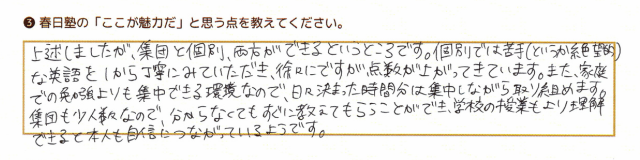 ❸ 春日塾の「ここが魅力だ」と思う点を教えてください。
上述しましたが、集団と個別、両方ができるというところです。個別では苦手(というか絶望的)
な英語を1から丁寧にみていただき、徐々にですが点数が上がってきています。また、家庭
での勉強よりも集中できる環境なので、日々決まった時間分は集中しながら取り組めます。
集団も少人数なので、分からなくてもすぐに教えてもらうことができ、学校の授業もより理解
できると本人も自信につながっているようです。